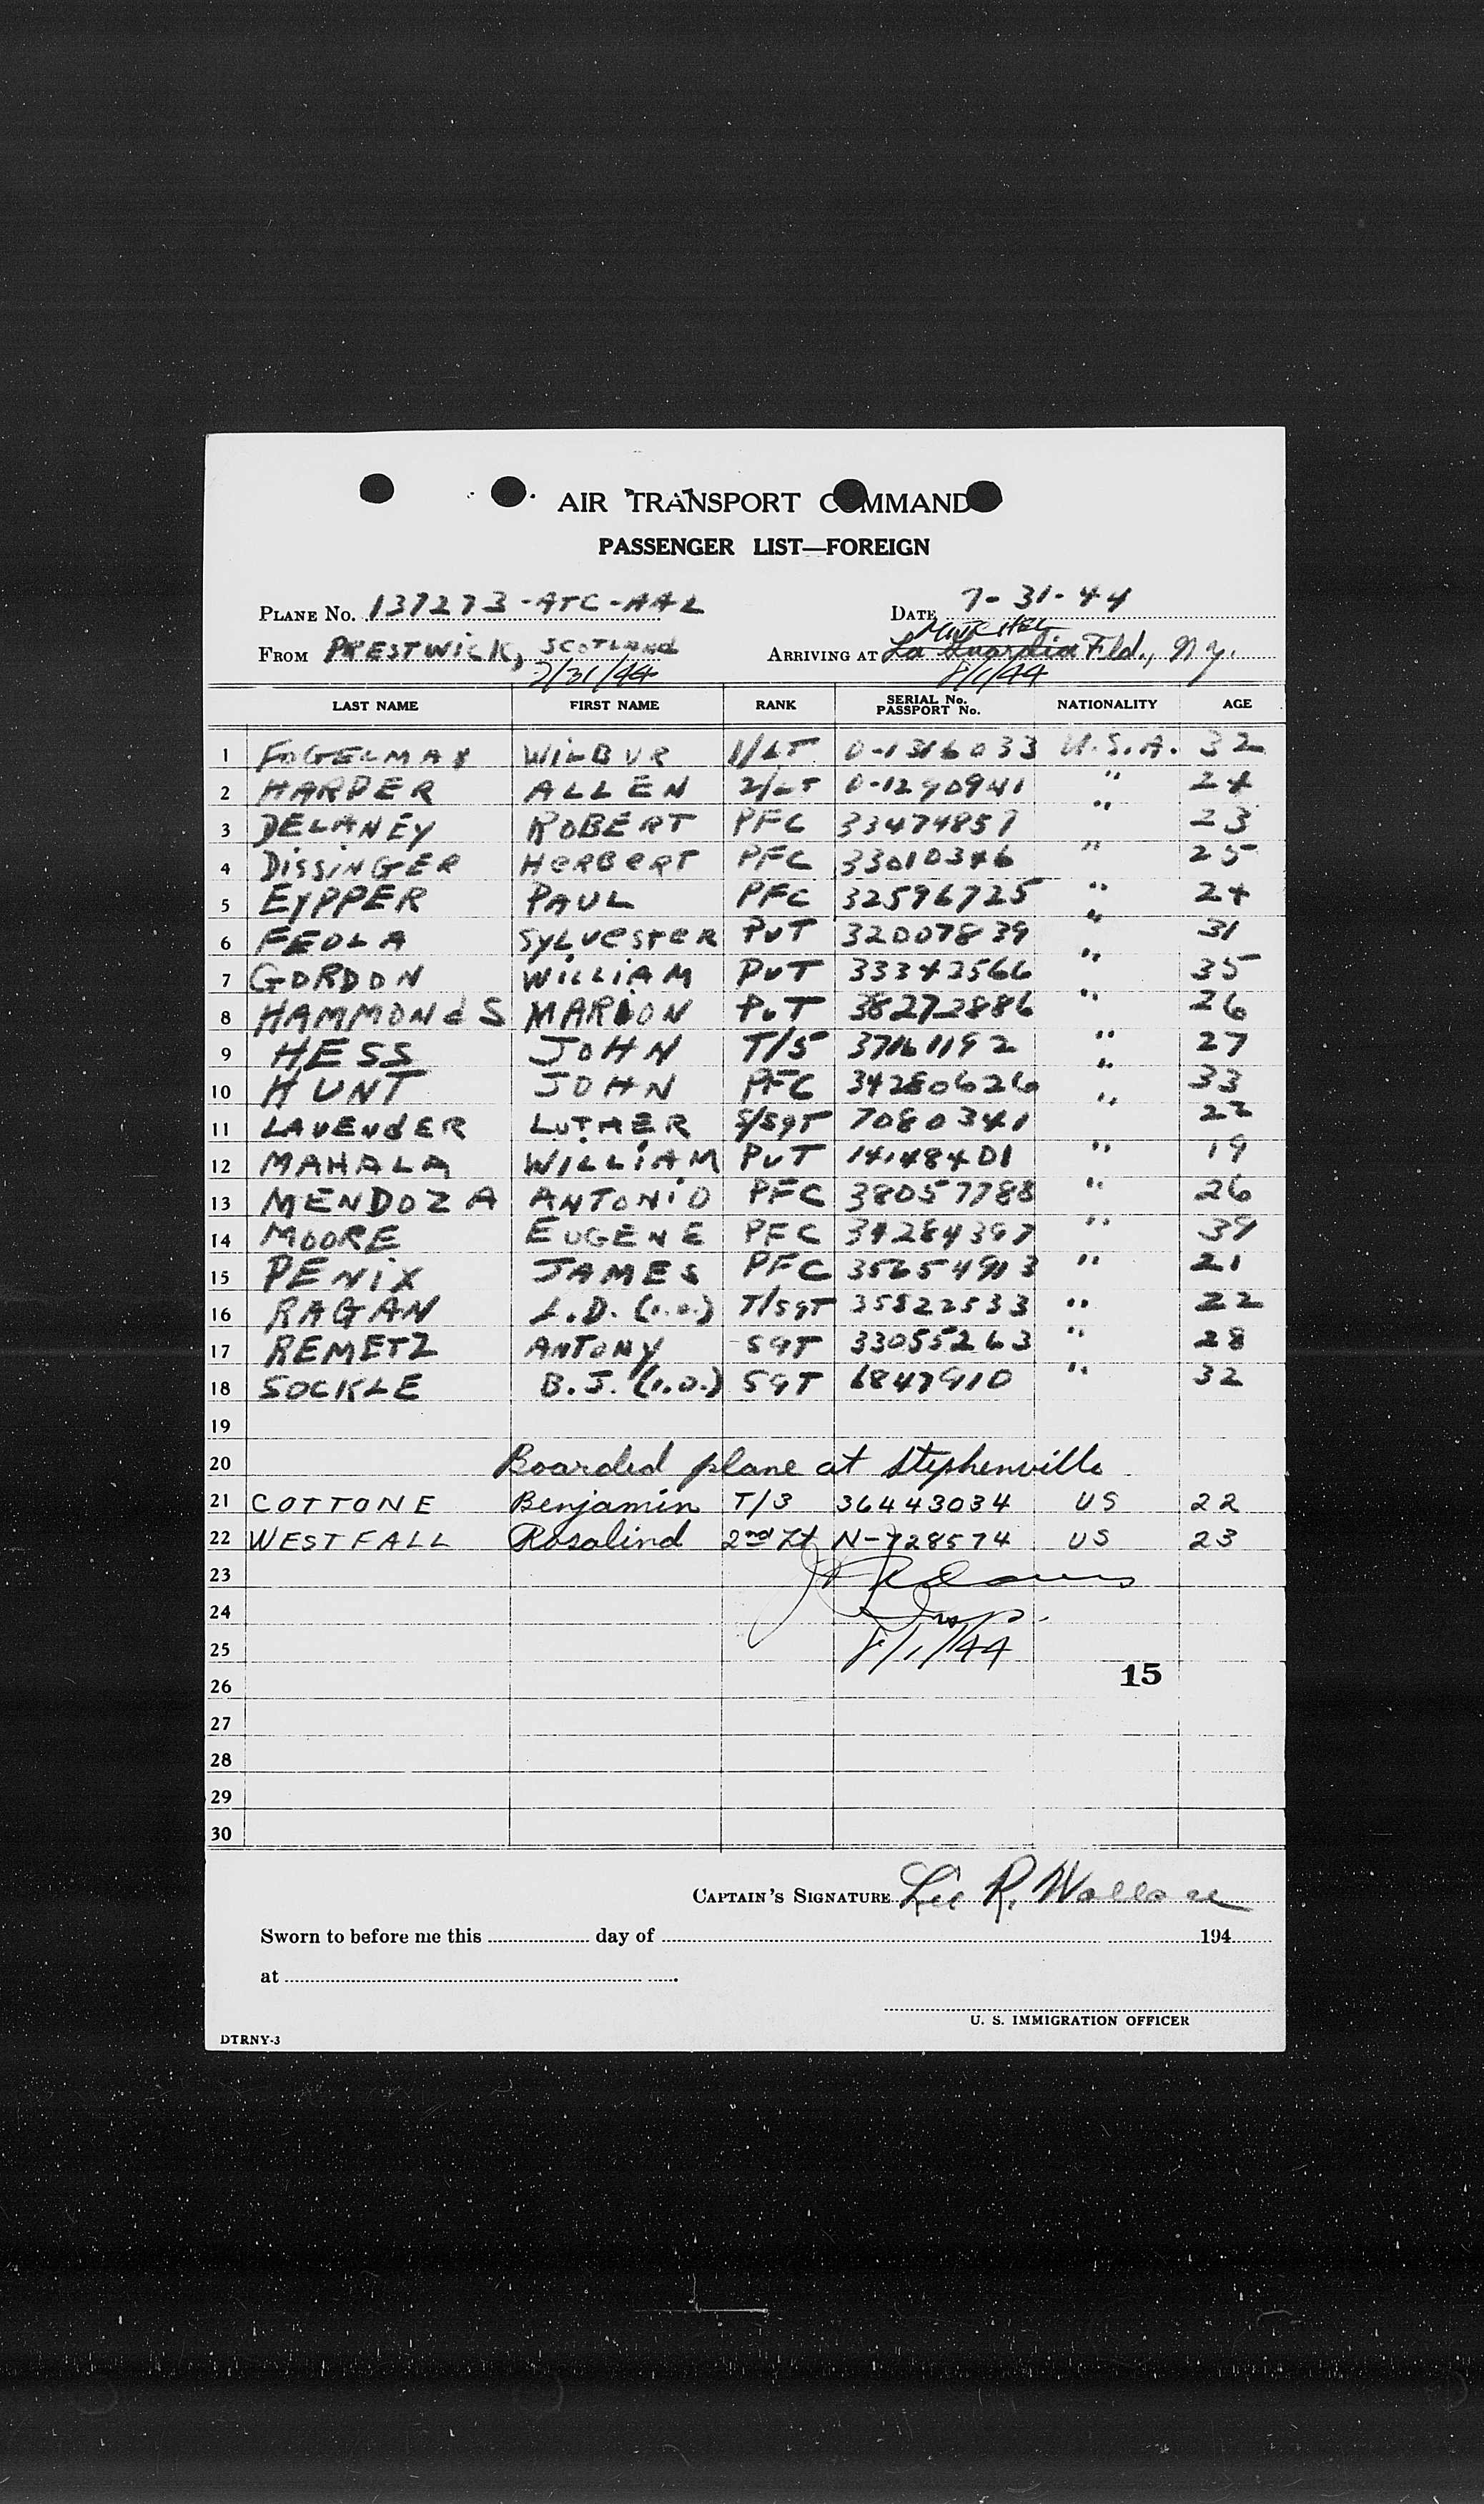 AIR TRANSPORT COMMAND
PASSENGER LIST—FOREIGN
PLANE No. 137273-ATC-AAL DATE 7-31-44
MITCHEL
FROM PRESTWICK, SCOTLAND ARRIVING AT La Guardia Fld., N.Y.
7/31/44 8/1/44
LAST NAME FIRST NAME RANK SERIAL No. PASSPORT No. NATIONALITY AGE
1 FOGELMAN WILBUR 1/LT O-1316033 U.S.A. 32
2 HARPER ALLEN 2/LT O-1290941 " 24
3 DELANEY ROBERT PFC 33474857 " 23
4 DISSINGER HERBERT PFC 33010346 " 25
5 EYPPER PAUL PFC 32596725 " 24
6 FEOLA SYLVESTER PVT 32007839 " 31
7 GORDON WILLIAM PVT 33342566 " 35
8 HAMMONdS MARION PVT 38272886 " 26
9 HESS JOHN T/5 37161192 " 27
10 HUNT JOHN PFC 34280626 " 33
11 LAVENdER LUTHER S/SGT 7080341 " 22
12 MAHALA WILLIAM PVT 14148401 " 19
13 MENDOZA ANTONIO PFC 38057788 " 26
14 MOORE EUGENE PFC 34284397 " 39
15 PENIX JAMES PFC 35654913 " 21
16 RAGAN L.D. (I.O.) T/SGT 35522533 " 22
17 REMETZ ANTONY SGT 33055263 " 28
18 SOCKLE B.J. (I.O.) SGT 6847910 " 32
19
20 Boarded plane at Stephenville
21 COTTONE Benjamin T/3 36443034 US 22
22 WESTFALL Rosalind 2nd Lt N-728574 US 23
23
24 Insp.
25 8/1/44
26 15
27
28
29
30
CAPTAIN'S SIGNATURE Lee R. Wallace
Sworn to before me this day of 194
at
U. S. IMMIGRATION OFFICER
DTRNY-3